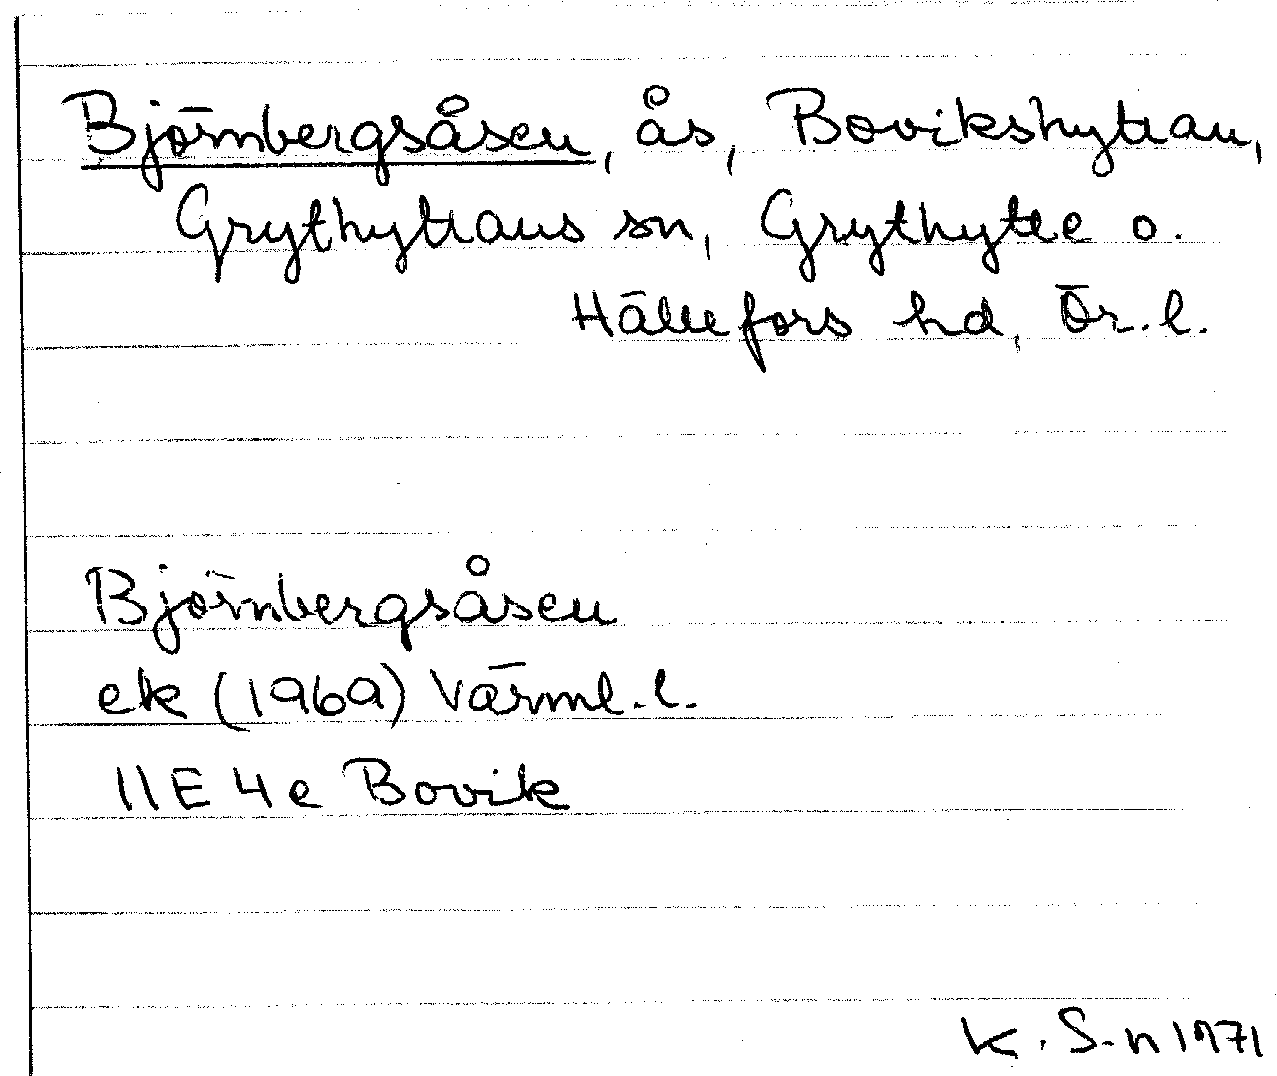 Björnbergsåsen, ås, Bovikshyttan,
Grythyttans sn, Grythytte o.
Hällefors hd, Ör. l.
Björnbergsåsen
ek (1969) Värml. l.
11E 4e Bovik
K. S-n 1971